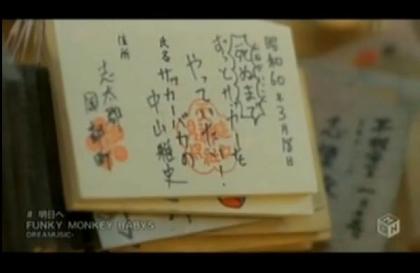 昭和60年3月18日
死ぬまで
ずっとサッカーを
やっていたい!
氏名 サッカーバカの
中山雅史
住所
志太郡
岡部町
# 明日へ
FUNKY MONKEY BABYS
DREAMUSIC・